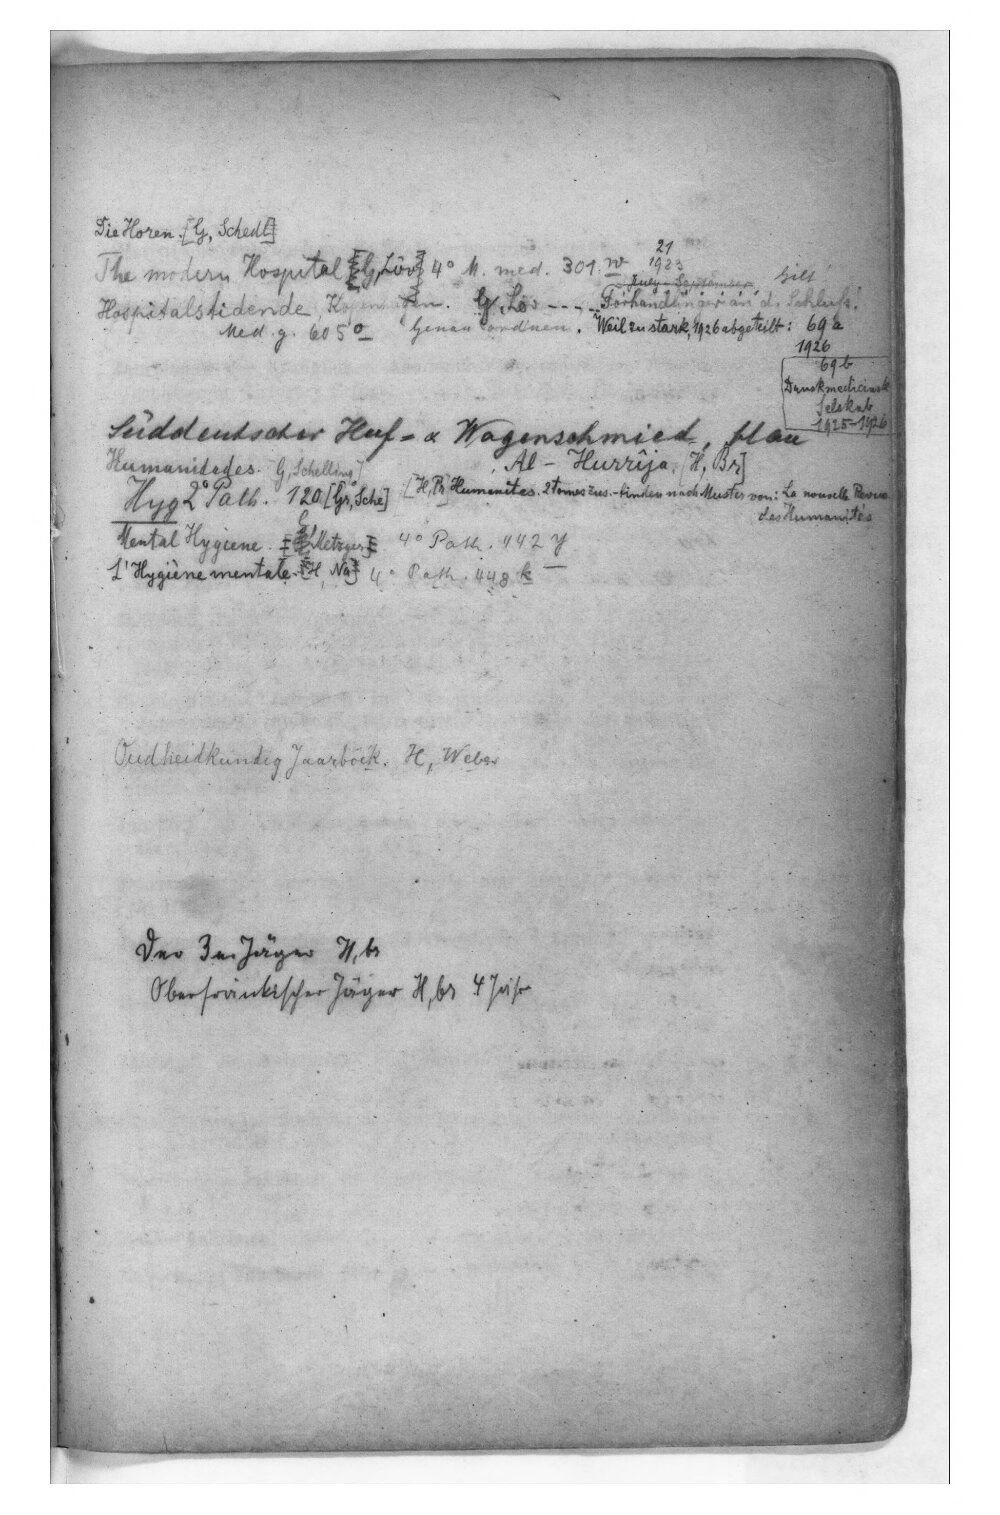 Die Horen. [G, Schedl]
21
The modern Hospital [G, Löv] 4° M. med. 301. w 1923
July - September
Gilt
Hospitalstidende, Kopenhagen. G, Lös - - - - Förhandlinjer an d. Schluß!
Med. g. 605° Genau ordnen. Weil zu stark, 1926 abgeteilt: 69 a
1926
69 b
Dansk medicinsk
Selskab
1925-1926
Süddeutscher Huf- & Wagenschmied, blau
Humanidades. G, Schelling] Al - Hurrija, [H, Br]
Hyg 2° Path. 120 [Gr, Sche] [H, Br] Humanitas. 2 tomes zus. - binden nach Muster von: La nouvelle Revue
des Humanités
Mental Hygiene. [G, Metzger] 4° Path. 442 y
L'Hygiène mentale. [H, Na] 4° Path. 448 k
Oudheidkundig Jaarböek. H, Weber
Der Jäger H, br
Oberfränkischer Jäger H, br 4 Jahre